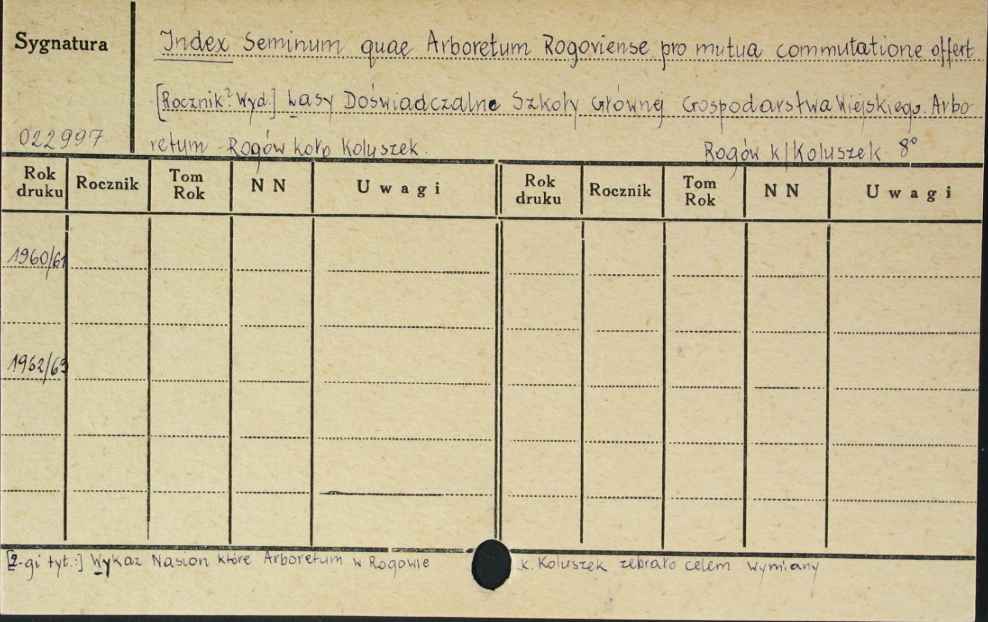 Sygnatura
Index Seminum quae Arboretum Rogoviense pro mutua commutatione offert
[Rocznik? Wyd.] Lasy Doświadczalne Szkoły Głównej Gospodarstwa Wiejskiego. Arbo-
022997
retum - Rogów koło Koluszek.
Rogów k/Koluszek 8°
Rok druku Rocznik Tom Rok NN Uwagi Rok druku Rocznik Tom Rok NN Uwagi
1960/61
1962/63
[2-gi tyt.:] Wykaz Nasion które Arboretum w Rogowie k. Koluszek zebrało celem wymiany